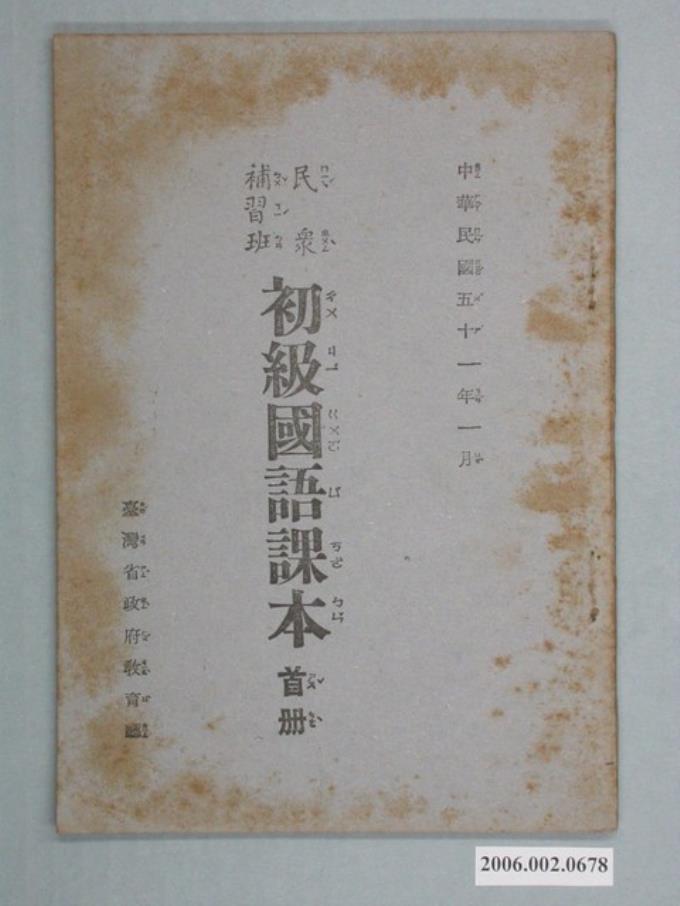 中華民國五十一年一月
民眾
補習班
初級國語課本 首册
臺灣省政府教育廳
2006.002.0678